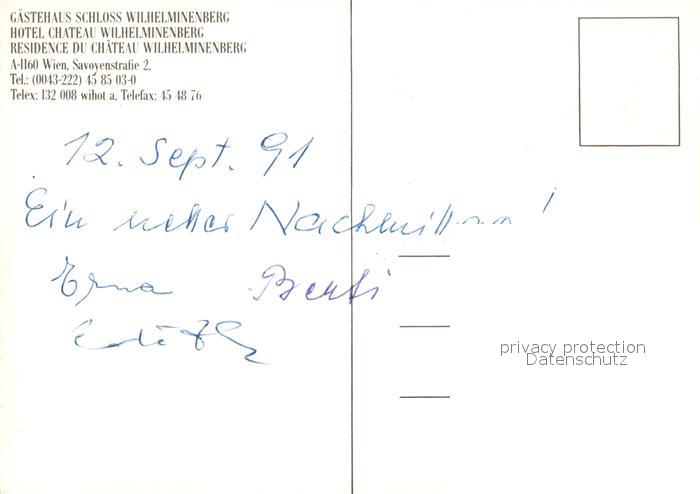 GÄSTEHAUS SCHLOSS WILHELMINENBERG
HOTEL CHATEAU WILHELMINENBERG
RESIDENCE DU CHÂTEAU WILHELMINENBERG
A-1160 Wien, Savoyenstraße 2,
Tel.: (0043-222) 45 85 03-0
Telex: 132 008 wihot a, Telefax: 45 48 76
12. Sept. 91
Ein netter Nachmittag!
Erna
Edith
privacy protection
Datenschutz